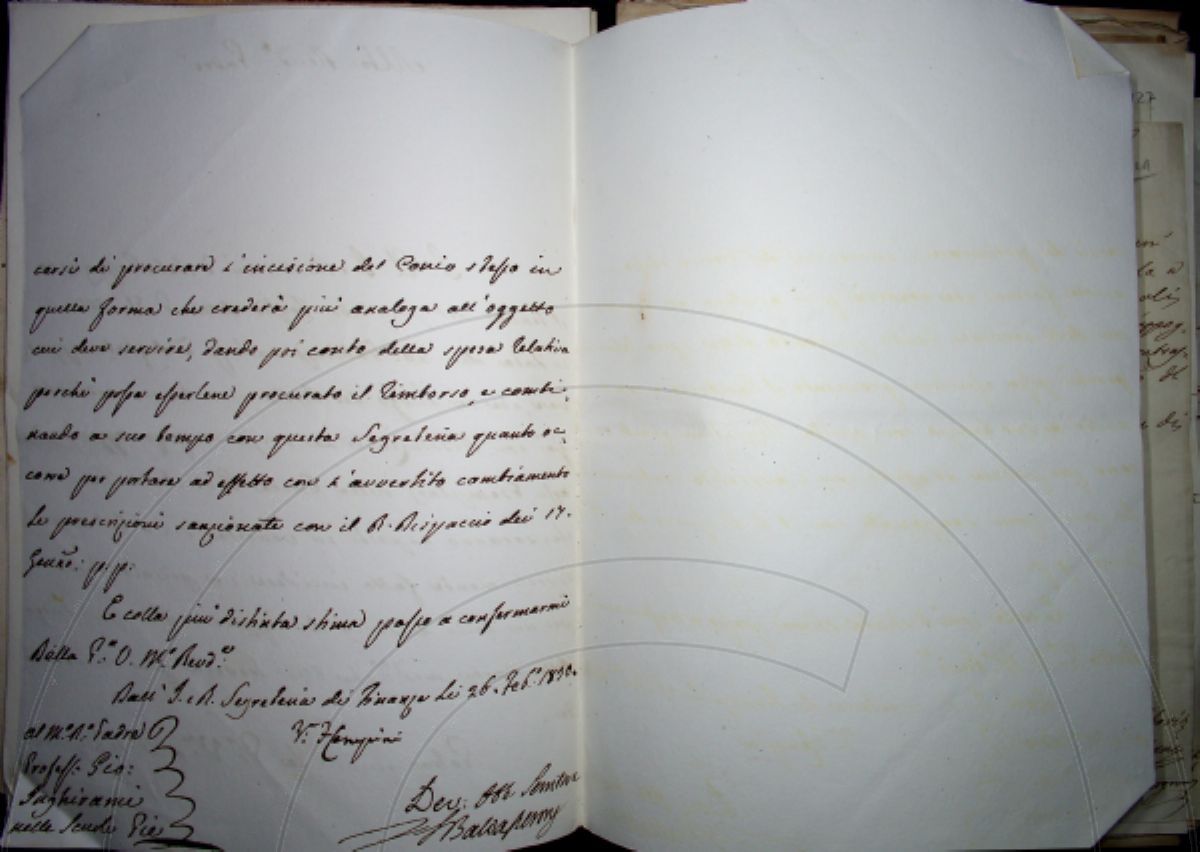 carsi di procurare l'incisione del Conio stesso in
quella forma che crederà più analoga all'oggetto
cui deve servire, dando poi conto della spesa relativa
perchè possa essperlene procurato il rimborso, e combi,
nando a suo tempo con questa Segreteria quanto oc,
corre per portare ad effetto con l'avvertito cambiamento
le prescrizioni sanzionate con il R. Dispaccio dei 17.
Genn°: p.p:
E colla più distinta stima passo a confermarmi
Della P.a V. M.o Revd.a
Dall' I. e R. Segreteria di Finanze li 26. Feb.o 1830.
al M.o R.o Padre
V.
Profess. Gio:
Inghirami
Dev: Obb Servitore
nelle Scuole Pie